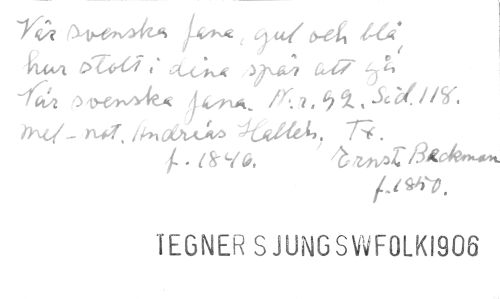 Vår svenska fana, gul och blå,
hur stolt i dina spår att gå
Vår svenska fana. N:r. 92. Sid. 118.
mel-not. Andreas Hallén, Tx.
f. 1846. Ernst Beckman
f. 1850.
TEGNER SJUNGSWFOLK1906